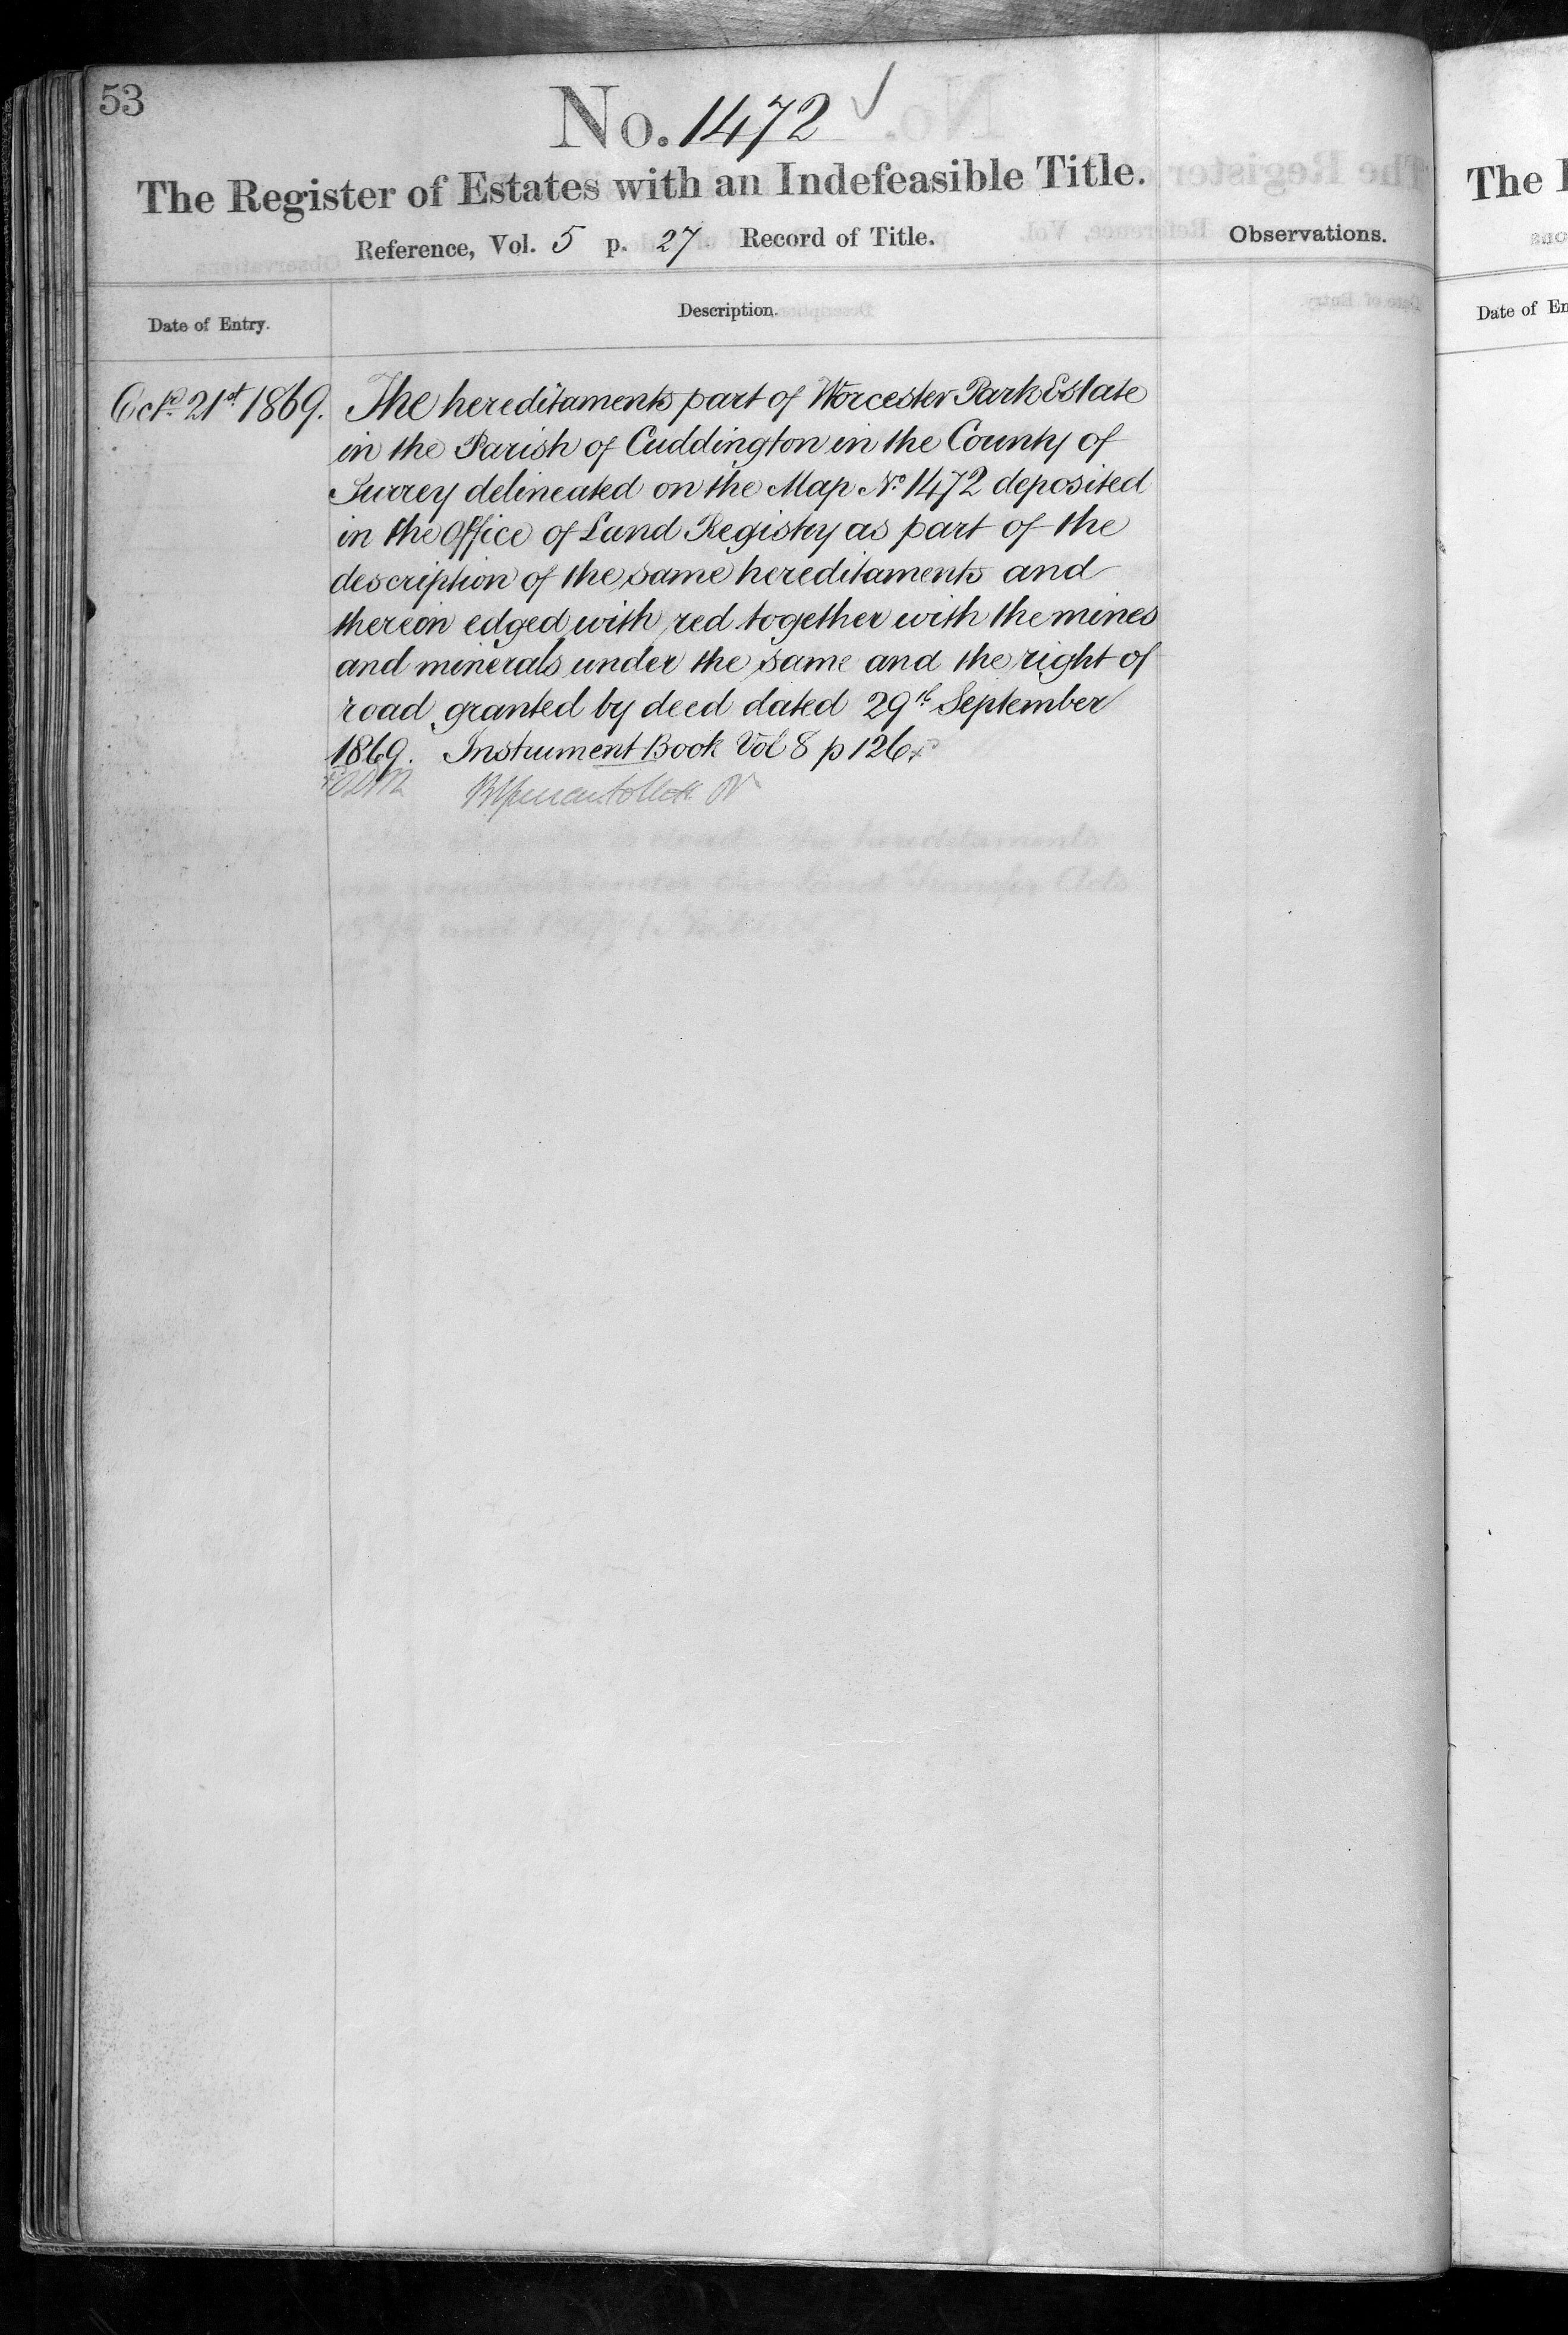 53
No. 1472 ✓
The Register of Estates with an Indefeasible Title.
Reference, Vol. 5 p. 27 Record of Title.
Observations.
Date of Entry.
Description.
Octr. 21st 1869.
The hereditaments part of Worcester Park Estate
in the Parish of Cuddington in the County of
Surrey delineated on the Map No. 1472 deposited
in the Office of Land Registry as part of the
description of the same hereditaments and
thereon edged with red together with the mines
and minerals under the same and the right of
road granted by deed dated 29th September
1869. Instrument Book Vol 8 p 126
hereditaments
under the Land Transfer Acts
and
The
Date of En